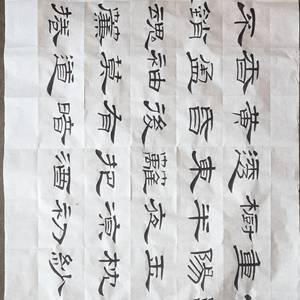 重陽玉枕紗
橱半夜涼初
透東籬把酒
黄昏後有暗
香盈袖莫道
不銷魂簾捲